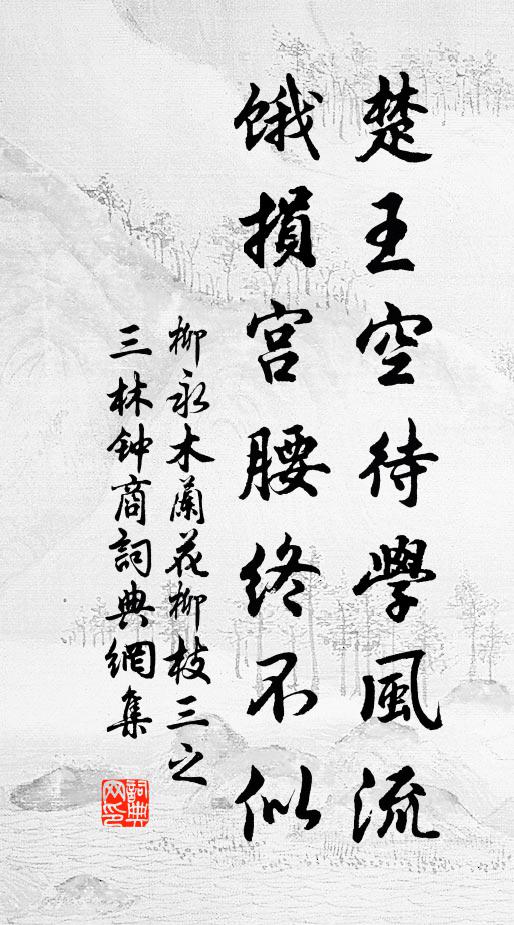 楚王空待學風流
餓損宮腰終不似
柳永木蘭花柳枝三之
三林钟商詞典網集
詞典网印